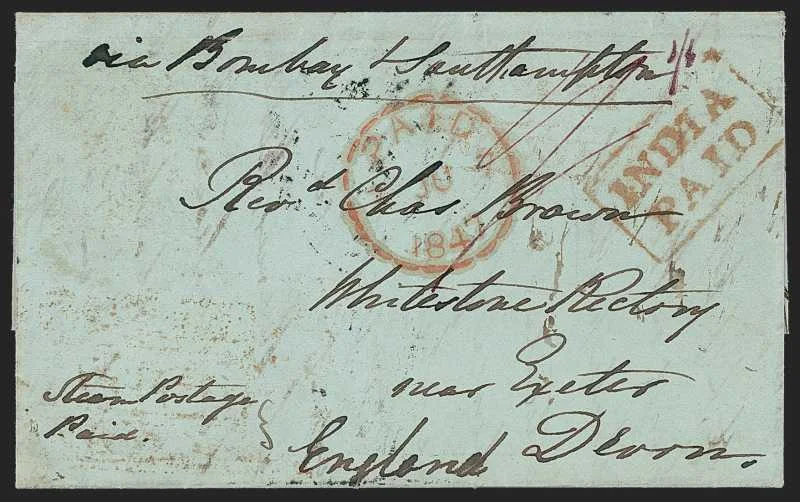 via Bombay & Southampton
1/
INDIA
PAID
PAID
JU
1847
Rev.d Chas. Brown
Whitestone Rectory
near Exeter
Steam Postage
Paid.
England Devon.